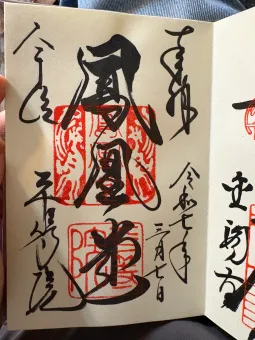 奉拝
令和七年
三月七日
鳳凰堂
宇治
平等院